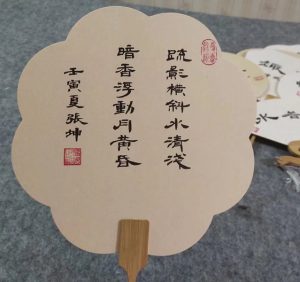 疏影橫斜水清淺
暗香浮動月黃昏
壬寅夏張坤